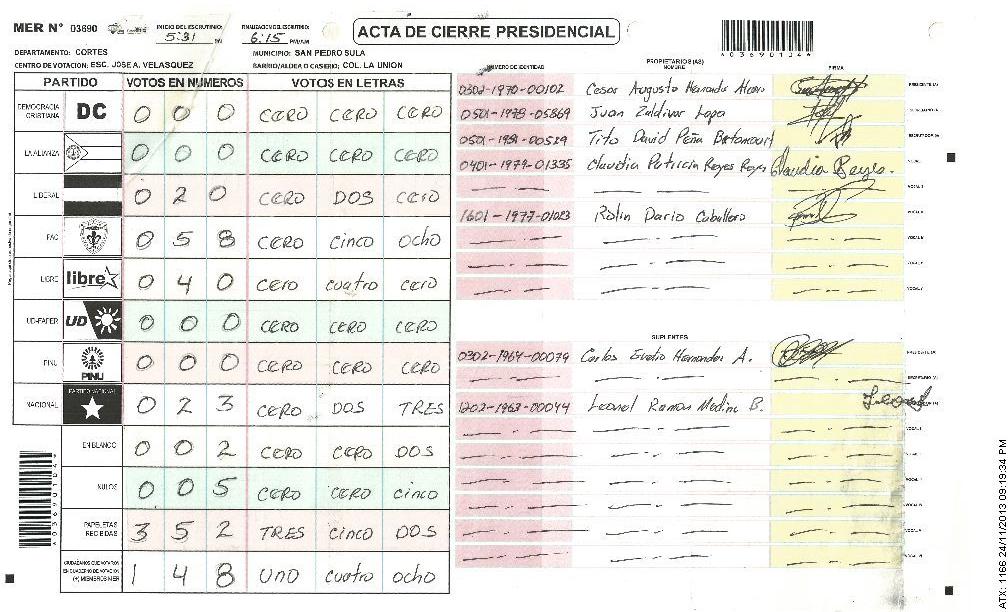 MER N° 03690
INICIO DEL ESCRUTINIO: 5:31 PM
FINALIZACION DEL ESCRUTINIO: 6:15 PM/AM
ACTA DE CIERRE PRESIDENCIAL
DEPARTAMENTO: CORTES
MUNICIPIO: SAN PEDRO SULA
CENTRO DE VOTACION: ESC. JOSE A. VELASQUEZ
BARRIO/ALDEA O CASERIO: COL. LA UNION
PARTIDO VOTOS EN NUMEROS VOTOS EN LETRAS
DEMOCRACIA CRISTIANA DC 0 0 0 CERO CERO CERO
LA ALIANZA 0 0 0 CERO CERO CERO
LIBERAL 0 2 0 CERO DOS CERO
PAC 0 5 8 CERO CINCO OCHO
LIBRE libre 0 4 0 CERO CUATRO CERO
UD-FAPER UD 0 0 0 CERO CERO CERO
PINU PINU 0 0 0 CERO CERO CERO
NACIONAL PARTIDO NACIONAL 0 2 3 CERO DOS TRES
EN BLANCO 0 0 2 CERO CERO DOS
NULOS 0 0 5 CERO CERO CINCO
PAPELETAS RECIBIDAS 3 5 2 TRES CINCO DOS
CIUDADANOS QUE VOTARON EN CUADERNO DE VOTACION (+) MIEMBROS MER 1 4 8 UNO CUATRO OCHO
PROPIETARIOS (AS)
NUMERO DE IDENTIDAD NOMBRE FIRMA
0302-1970-00102 Cesar Augusto Hernandez PRESIDENTE (A)
0501-1978-05869 Juan Zaldivar SECRETARIO (A)
0501-1981-00519 Tito David Peña Betancourt ESCRUTADOR (A)
0401-1979-01335 Claudia Patricia Reyes Reyes Claudia Reyes. VOCAL I
VOCAL II
1601-1977-01023 Rolin Dario Caballero VOCAL III
VOCAL IV
VOCAL V
SUPLENTES
0302-1964-00079 Carlos Evelio Hernandez A. PRESIDENTE (A)
SECRETARIO (A)
1202-1963-00044 Leonel Ramon Medina B.
A036901044
ATX: 1166 24/11/2013 09:19:34 PM